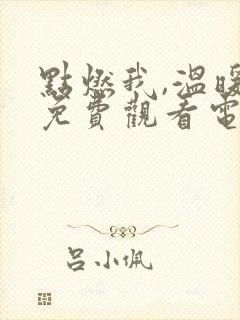 點燃我,溫暖
免費觀看電
吕小佩